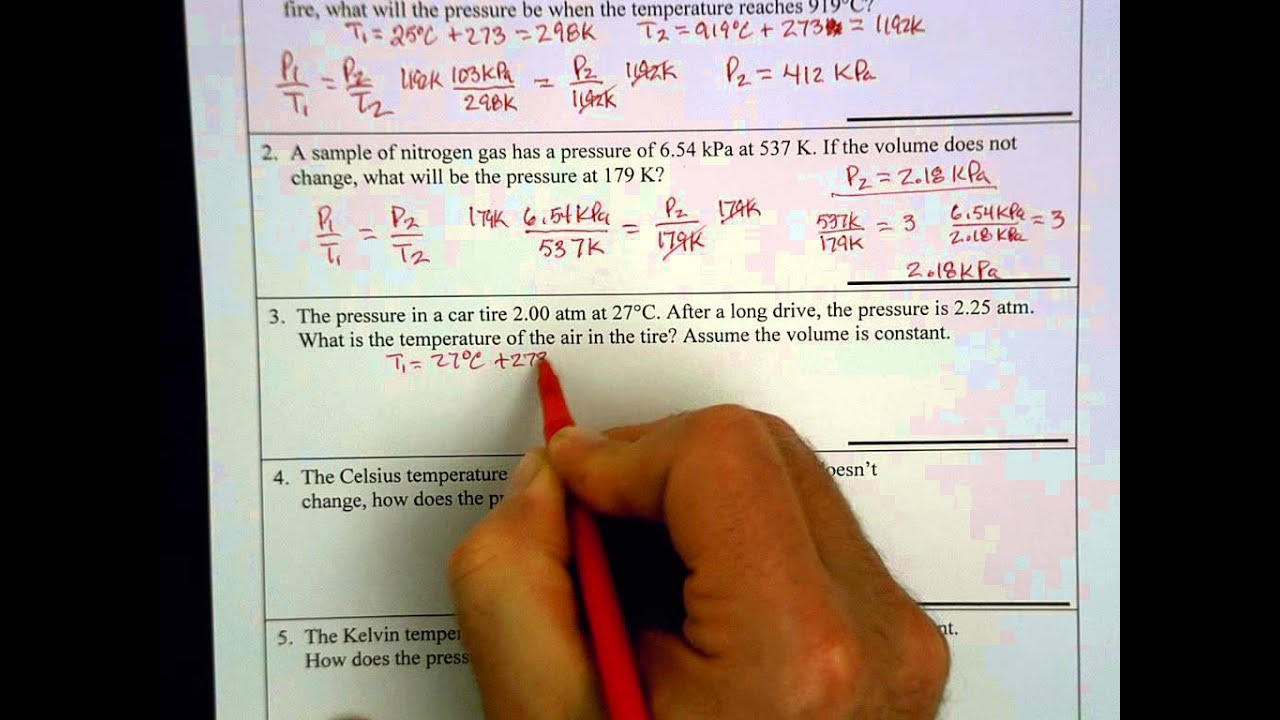 fire, what will the pressure be when the temperature reaches 919°C?
T₁ = 25°C + 273 = 298K T₂ = 919°C + 273 = 1192K
P₁/T₁ = P₂/T₂ 1192K 103KPa/298K = P₂/1192K 1192K P₂ = 412 KPa
2. A sample of nitrogen gas has a pressure of 6.54 kPa at 537 K. If the volume does not
change, what will be the pressure at 179 K?
P₂ = 2.18 KPa
P₁/T₁ = P₂/T₂ 179K 6.54KPa/537K = P₂/179K 179K 537K/179K = 3 6.54KPa/2.18KPa = 3
2.18KPa
3. The pressure in a car tire 2.00 atm at 27°C. After a long drive, the pressure is 2.25 atm.
What is the temperature of the air in the tire? Assume the volume is constant.
T₁ = 27°C + 273
4. The Celsius temperature
change, how does the
5. The Kelvin
How does the